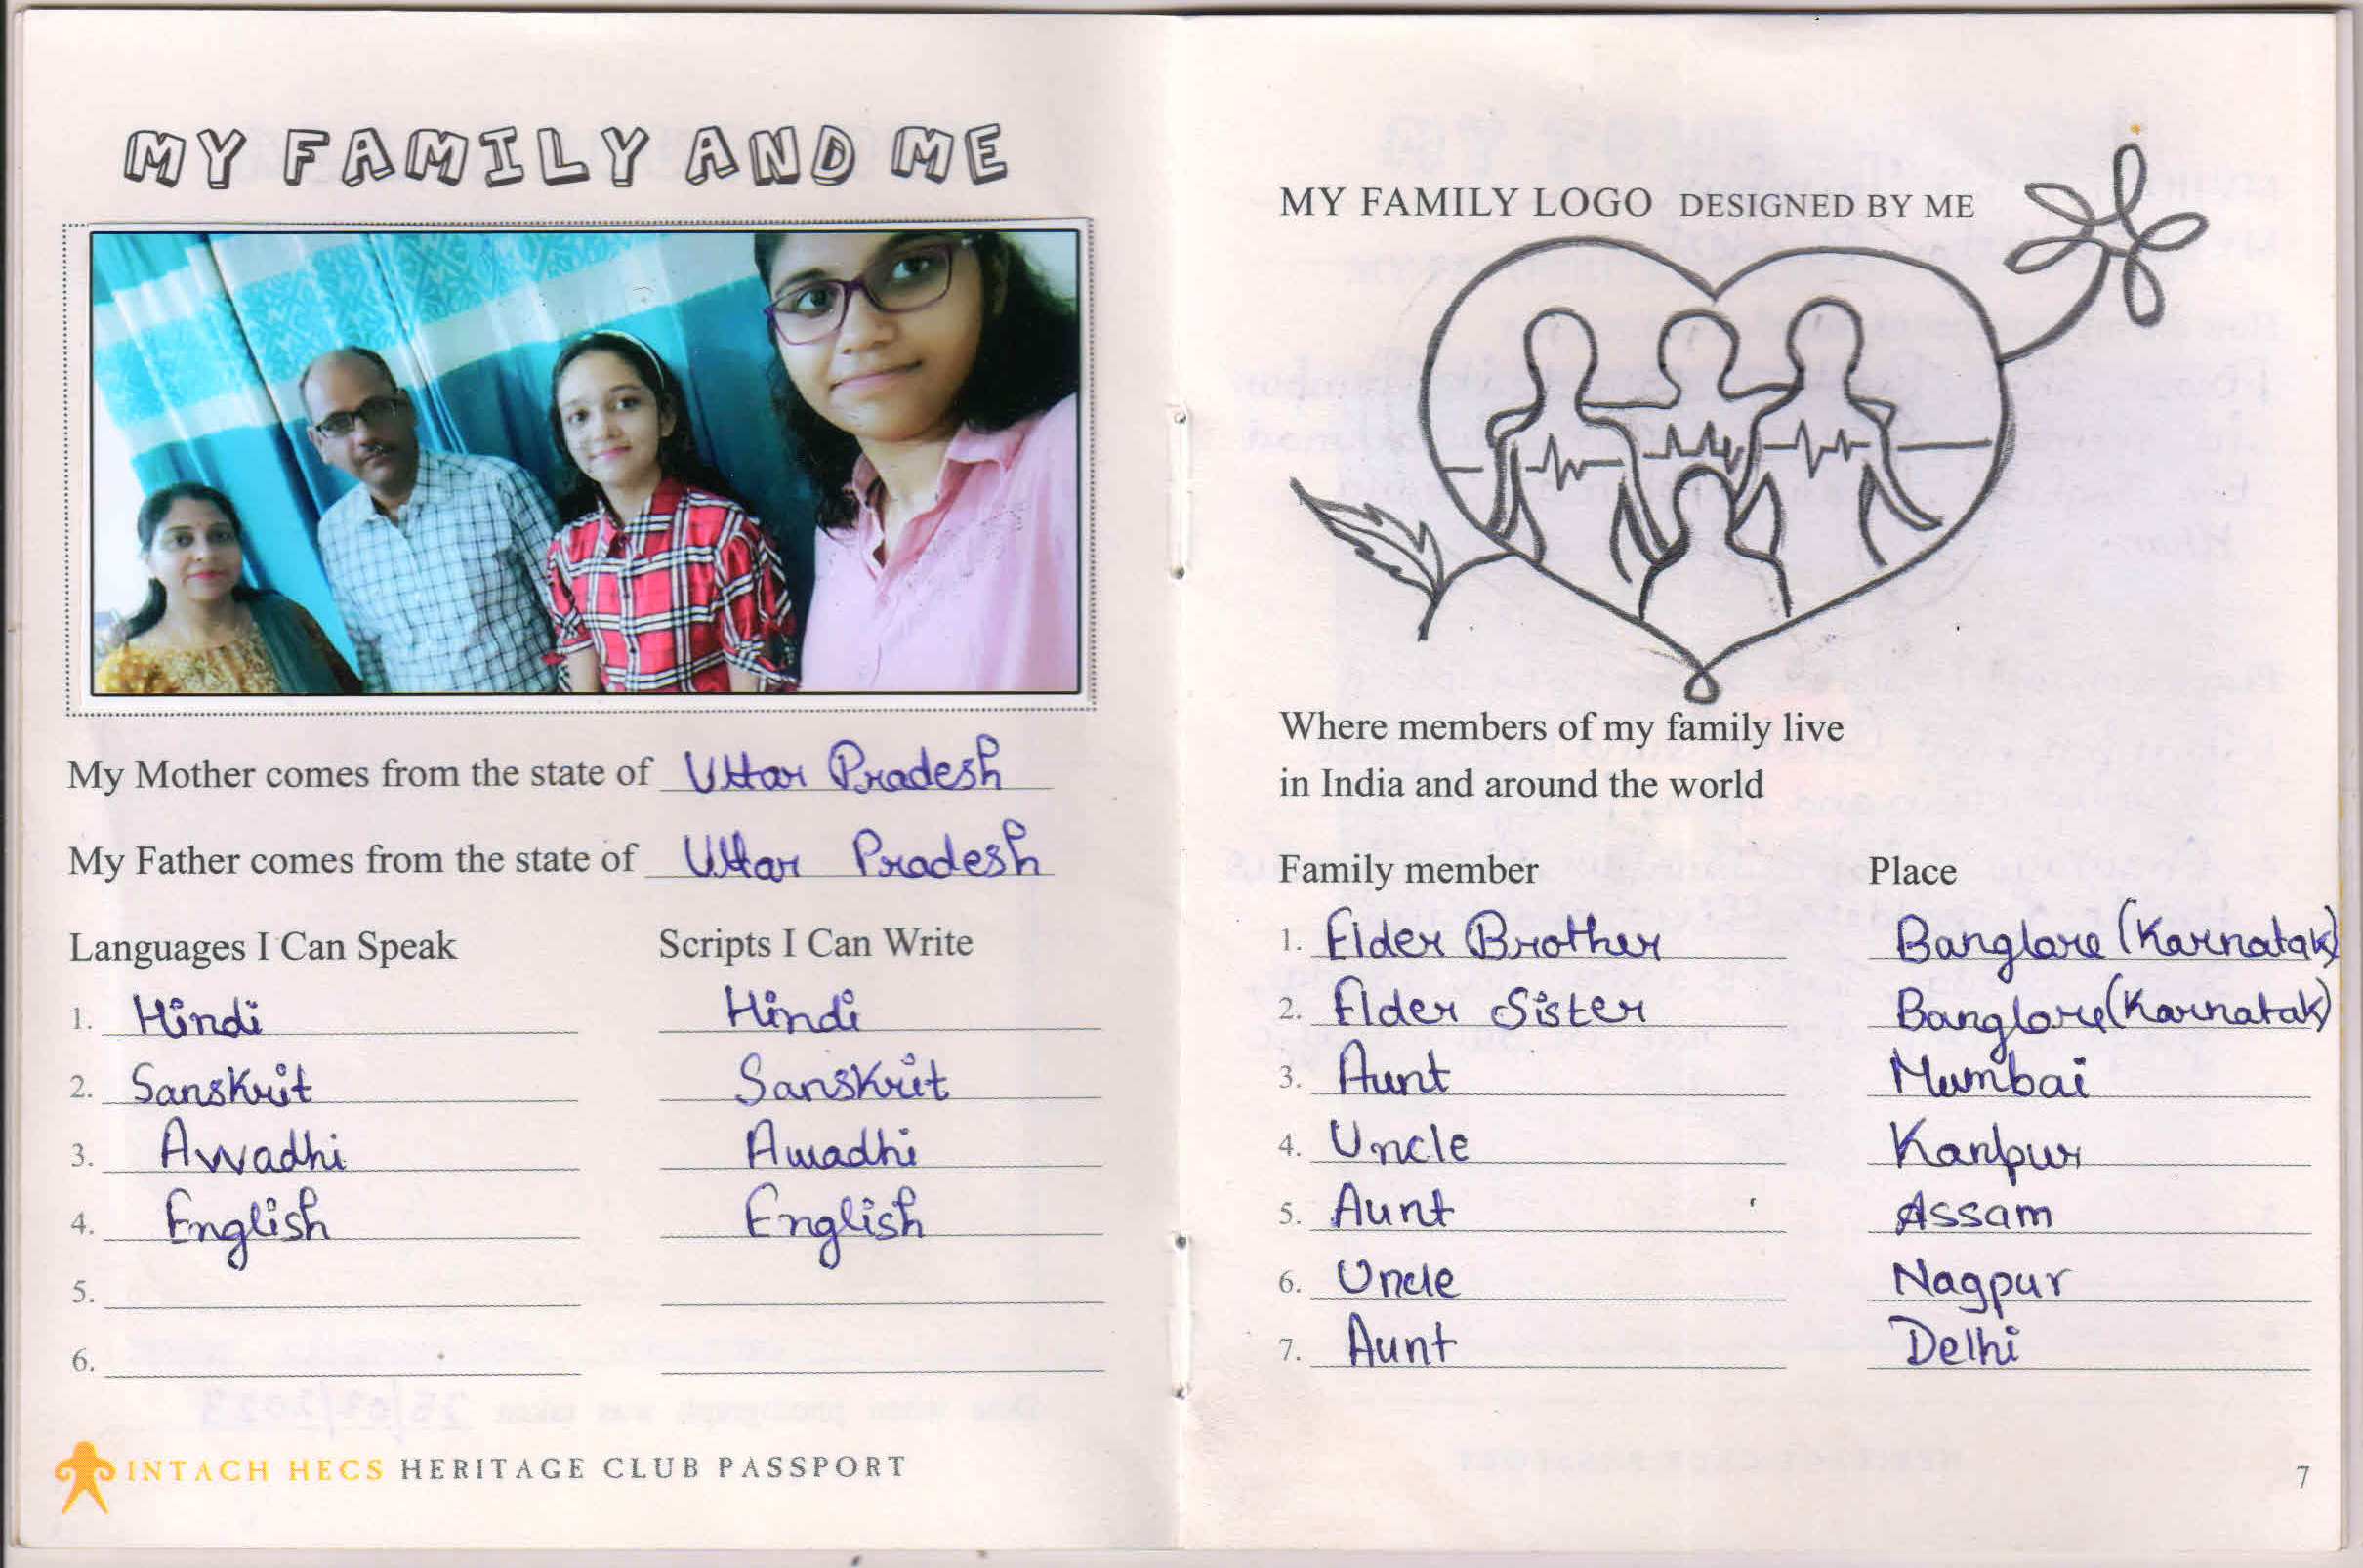 MY FAMILY AND ME
My Mother comes from the state of Uttar Pradesh
My Father comes from the state of Uttar Pradesh
Languages I Can Speak Scripts I Can Write
1. Hindi Hindi
2. Sanskrit Sanskrit
3. Awadhi Awadhi
4. English English
5.
6.
INTACH HECS HERITAGE CLUB PASSPORT
MY FAMILY LOGO DESIGNED BY ME
Where members of my family live
in India and around the world
Family member Place
1. Elder Brother Banglore (Karnatak)
2. Elder Sister Banglore (Karnatak)
3. Aunt Mumbai
4. Uncle Kanpur
5. Aunt Assam
6. Uncle Nagpur
7. Aunt Delhi
7